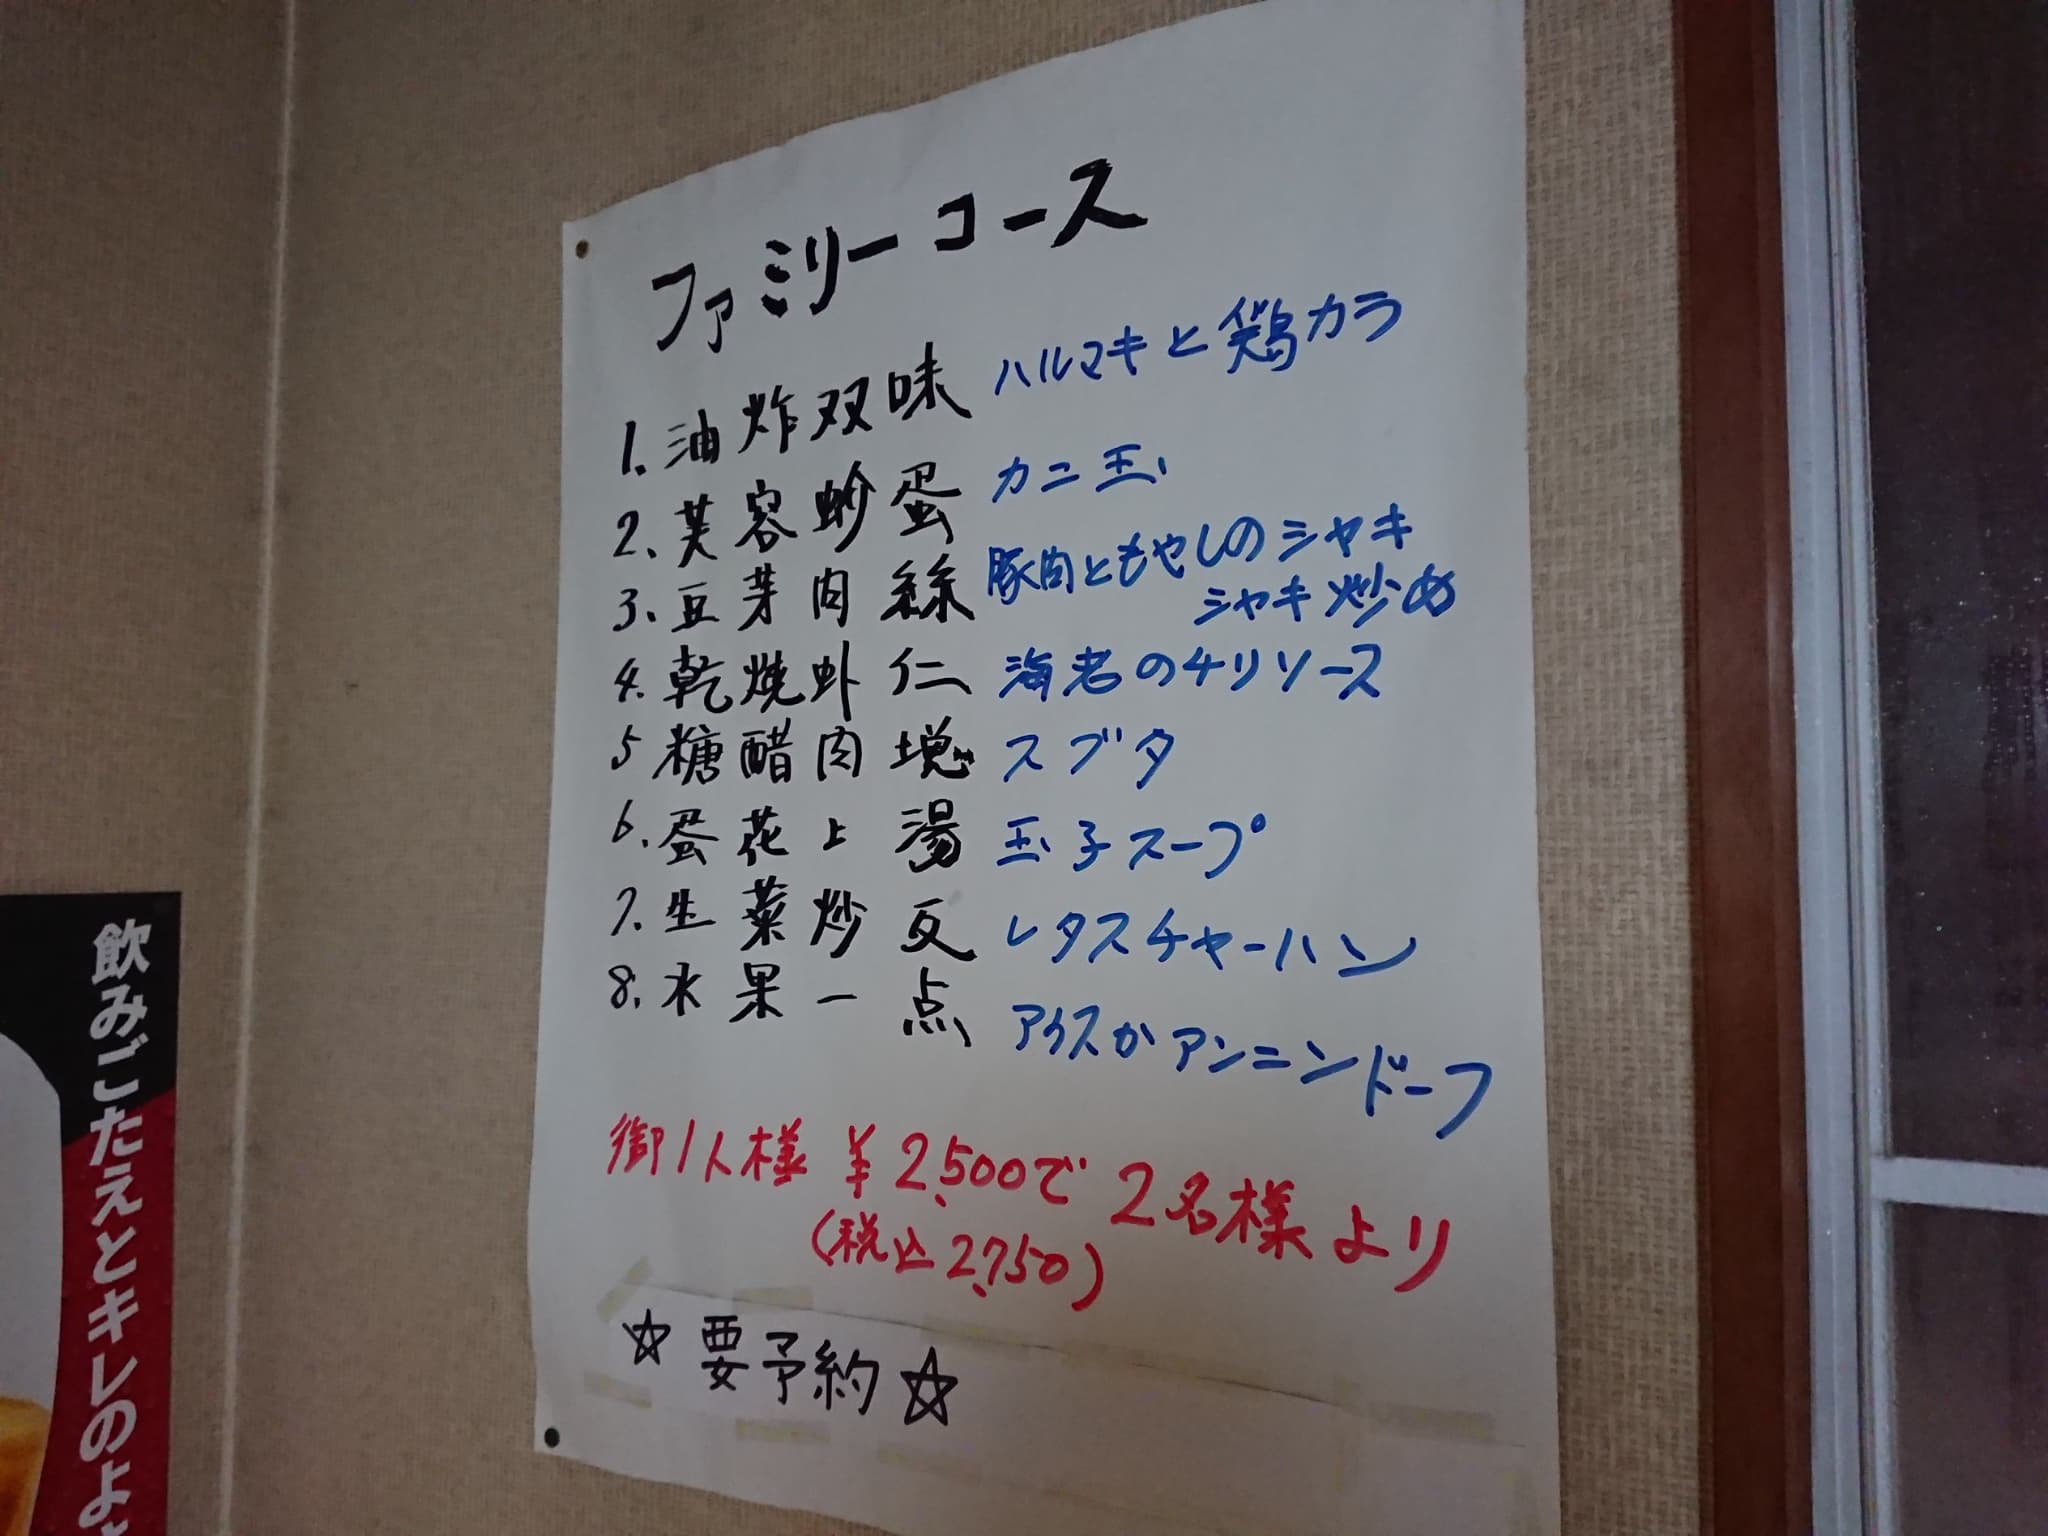 ファミリーコース
1. 油炸双味 ハルマキと鶏カラ
2. 芙容蚧蛋 カニ玉
3. 豆芽肉絲 豚肉ともやしのシャキ
シャキ炒め
4. 乾焼虾仁 海老のチリソース
5 糖醋肉塊 スブタ
6. 蛋花上湯 玉子スープ
7. 生菜炒反 レタスチャーハン
8. 水果一点 アイスかアンニンドーフ
御1人様 ¥2,500で 2名様より
(税込2,750)
☆要予約☆
飲みごたえとキレのよ